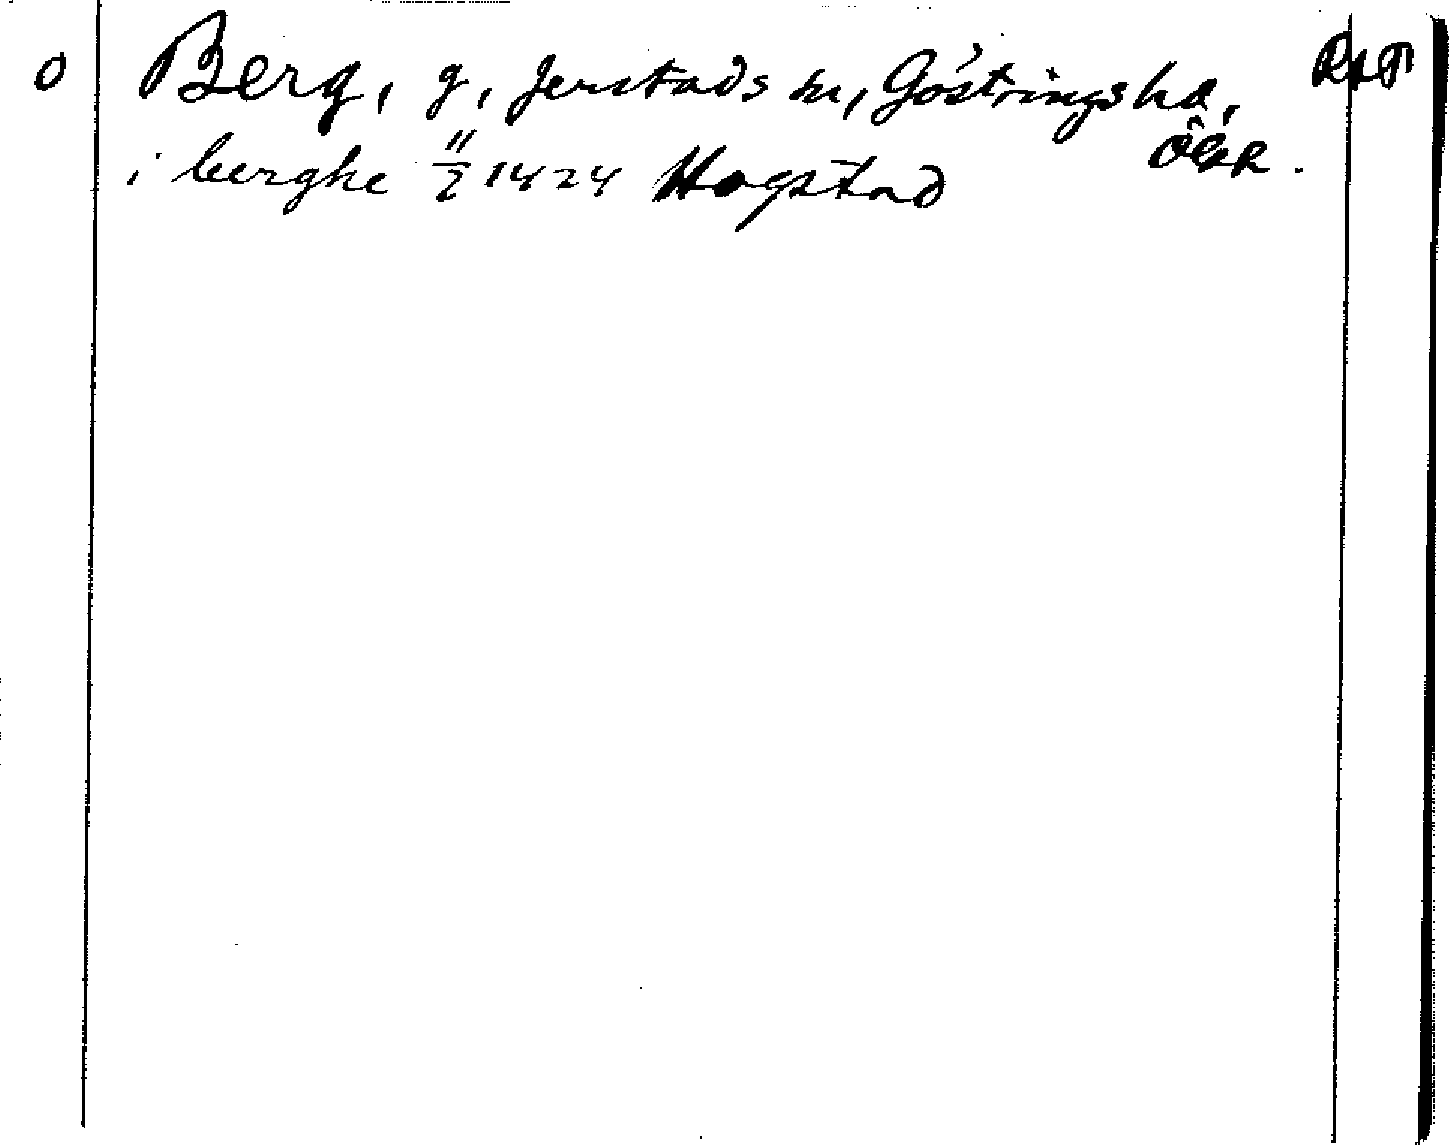 O Berg, g, Jerstads sn, Göstringshd,
ÖGR.
i berghe 11/2 1424 Hogstad